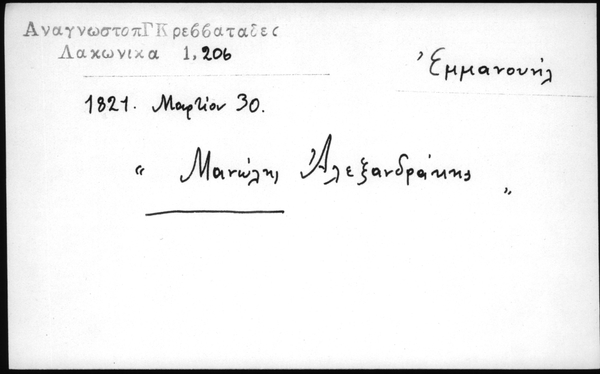 ΑναγνωστοπΓΚρεββαταδες
Λακωνικα 1,206
Ἐμμανουήλ
1821. Μαρτίου 30.
“ Μανώλης Ἀλεξανδράκης „